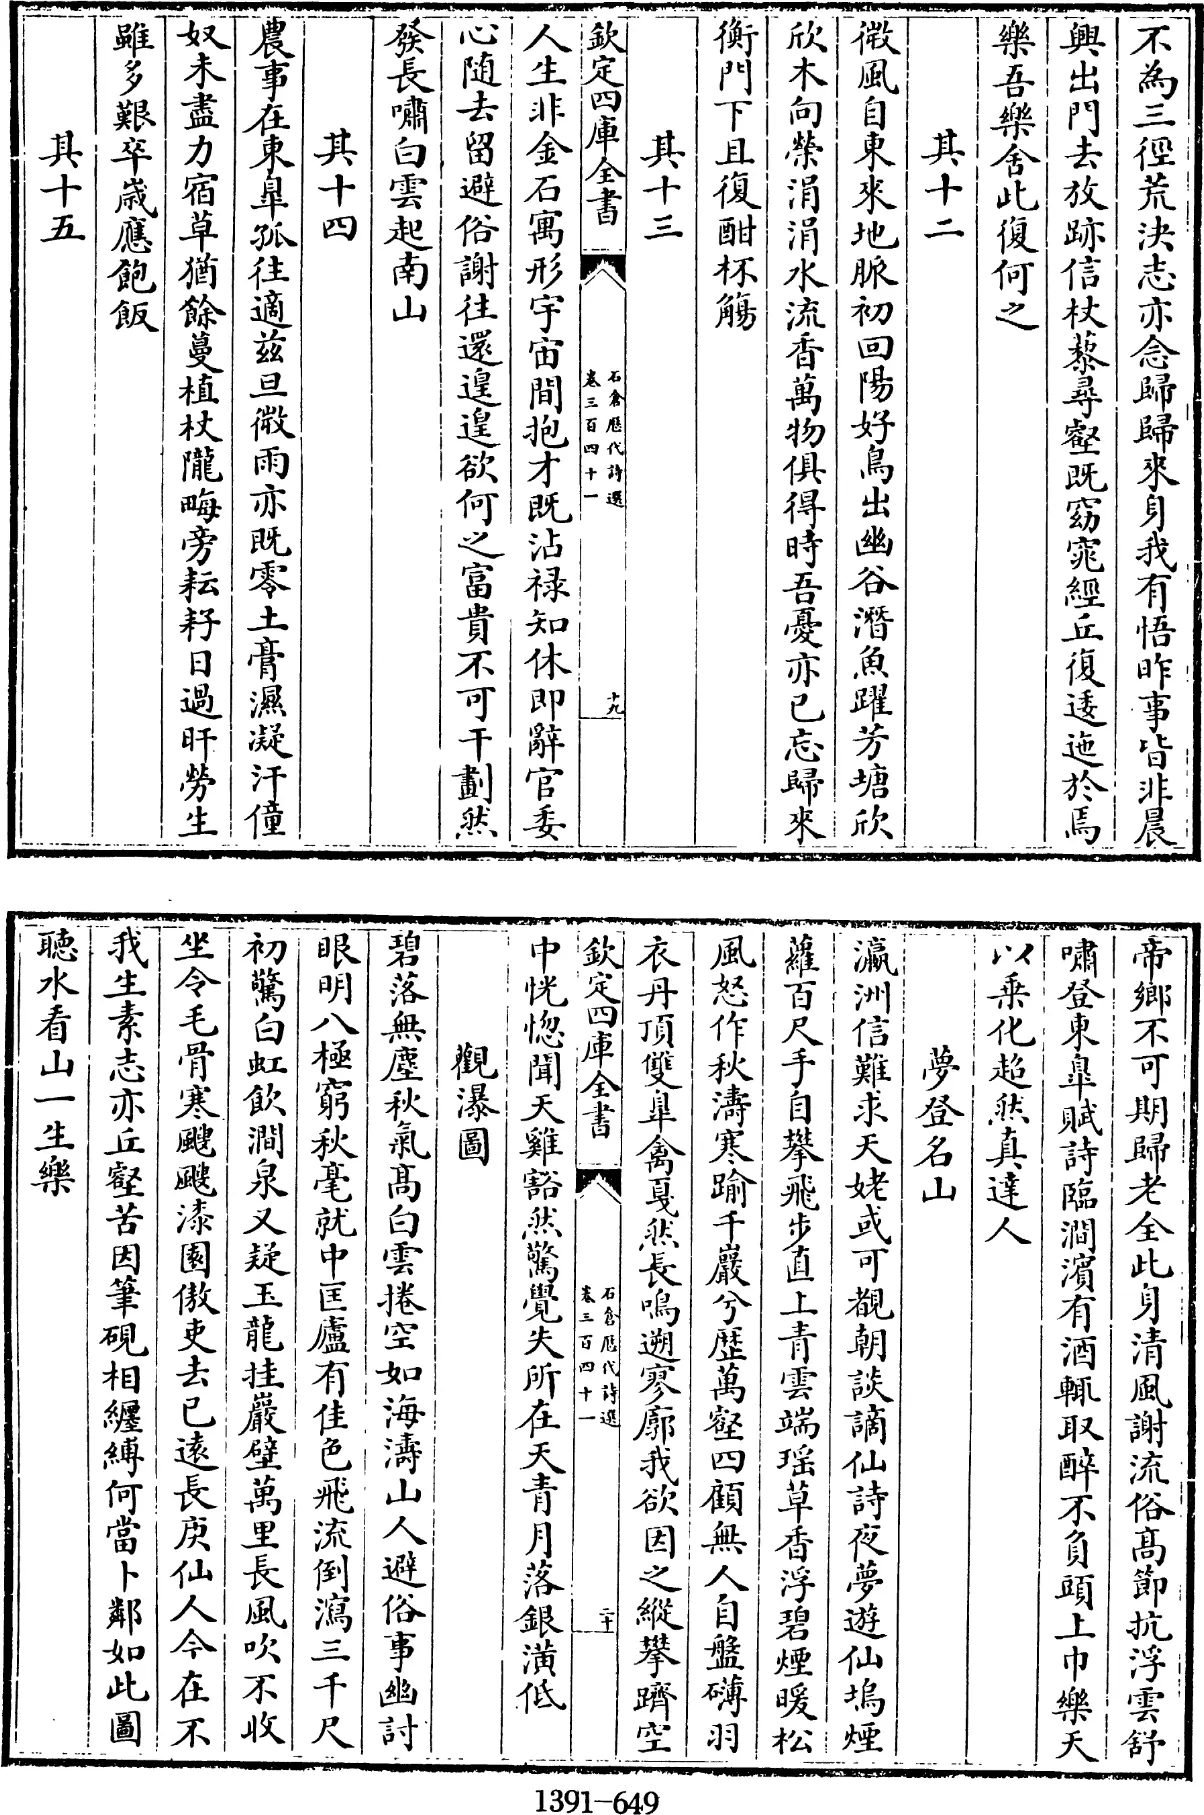 不為三徑荒決志亦念歸歸來身我有悟昨事皆非晨
興出門去放跡信杖藜尋壑既窈窕經丘復逶迤於焉
樂吾樂舍此復何之
其十二
微風自東來地脈初回陽好鳥出幽谷潛魚躍芳塘欣
欣木向榮涓涓水流香萬物俱得時吾憂亦已忘歸來
衡門下且復酣杯觴
其十三
欽定四庫全書
石倉歷代詩選
卷三百四十一
十九
人生非金石寓形宇宙間抱才既沾禄知休即辭官委
心隨去留避俗謝往還遑遑欲何之富貴不可干劃然
發長嘯白雲起南山
其十四
農事在東臯孤往適兹旦微雨亦既零土膏濕凝汗僮
奴未盡力宿草猶餘蔓植杖隴畮旁耘耔日過旰勞生
雖多艱卒歲應飽飯
其十五
帝鄉不可期歸老全此身清風謝流俗髙節抗浮雲舒
嘯登東臯賦詩臨澗濱有酒輒取醉不負頭上巾樂天
以乘化超然真達人
夢登名山
瀛洲信難求天姥或可覩朝談謫仙詩夜夢遊仙塢煙
蘿百尺手自攀飛步直上青雲端瑶草香浮碧煙暖松
風怒作秋濤寒踰千巖兮歷萬壑四顧無人自盤礡羽
衣丹頂雙臯禽戛然長鳴遡寥廓我欲因之縱攀躋空
欽定四庫全書
石倉歷代詩選
卷三百四十一
二十
中恍惚聞天雞豁然驚覺失所在天青月落銀潢低
觀瀑圖
碧落無塵秋氣髙白雲捲空如海濤山人避俗事幽討
眼明八極窮秋毫就中匡廬有佳色飛流倒瀉三千尺
初驚白虹飲澗泉又疑玉龍挂巖壁萬里長風吹不收
坐令毛骨寒颼颼漆園傲吏去已遠長庚仙人今在不
我生素志亦丘壑苦因筆硯相纏縛何當卜鄰如此圖
聽水看山一生樂
1391-649